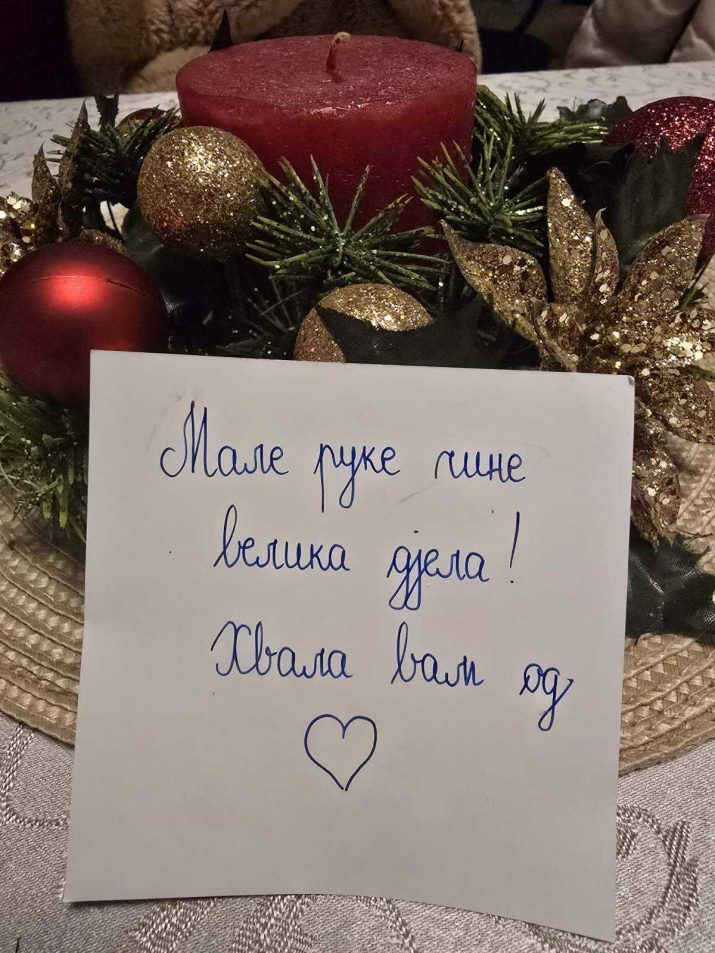 Мале руке чине
велика дјела!
Хвала вам од